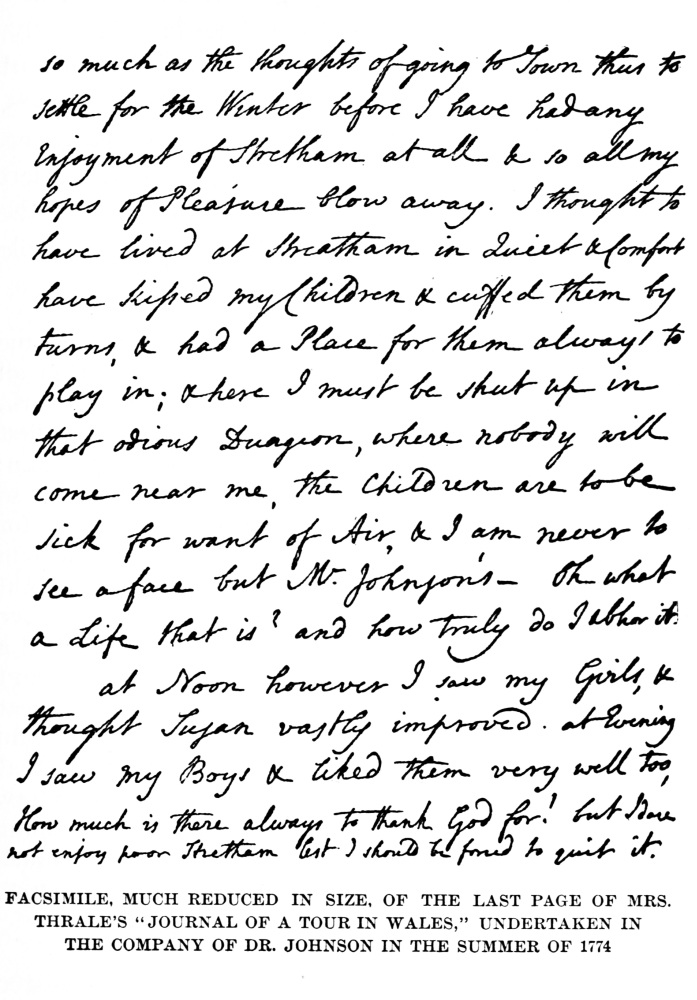 so much as the thoughts of going to Town thus to
settle for the Winter before I have had any
Enjoyment of Stretham at all & so all my
hopes of Pleasure blow away. I thought to
have lived at Streatham in Quiet & Comfort
have kissed my Children & cuffed them by
turns, & had a Place for them always to
play in; & here I must be shut up in
that odious Dungeon, where nobody will
come near me, the Children are to be
sick for want of Air, & I am never to
see a face but Mr. Johnson's— Oh what
a Life that is? and how truly do I abhor it.
at Noon however I saw my Girls, &
thought Susan vastly improved. at Evening
I saw my Boys & liked them very well too,
How much is there always to thank God for! but I dare
not enjoy poor Stretham lest I should be forced to quit it.
FACSIMILE, MUCH REDUCED IN SIZE, OF THE LAST PAGE OF MRS.
THRALE'S "JOURNAL OF A TOUR IN WALES," UNDERTAKEN IN
THE COMPANY OF DR. JOHNSON IN THE SUMMER OF 1774